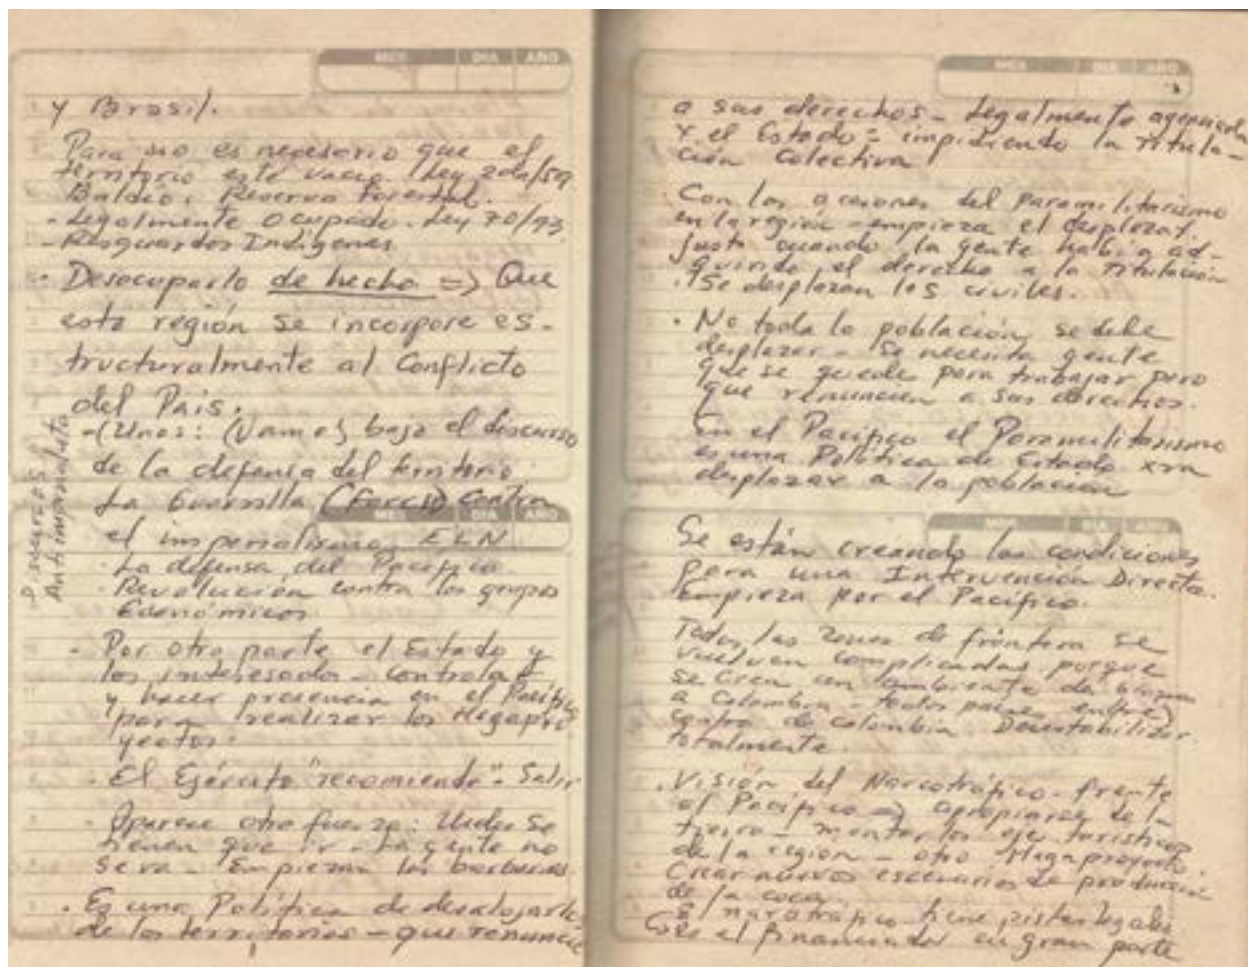 MES DIA AÑO
y Brasil.
Para no es necesario que el
territorio esté vacío. Ley 2da/59
Baldío. Reserva Forestal.
- Legalmente Ocupado. Ley 70/93
- Resguardos Indígenas
- Desocuparlo de hecho => Que
esta región se incorpore es-
tructuralmente al Conflicto
del País.
- (Unos: (Vamos) bajo el discurso
de la defensa del territorio.
La Guerrilla Contra
MES DIA AÑO
el imperialismo. ELN
- La defensa del Pacífico
- Revolución contra los grupos
Económicos
Discursos
Antiimperialista
- Por otra parte el Estado y
los interesados - controlar
y hacer presencia en el Pacífico
para realizar los Megapro
yectos.
- El Ejército "recomienda" - Salir
- Aparece otra fuerza: Uds Se
tienen que ir - La gente no
se va - Empiezan las barbaries
. Es una Política de desalojarlo
de los territorios - que renuncie
MES DIA AÑO
a sus derechos - Legalmente
x el Estado = impidiendo la Titula-
ción Colectiva
. Con las acciones del Paramilitarismo
en la región - empieza el desplazat.
justo cuando la gente había ad-
quirido el derecho a la Titulación
. Se desplazan los civiles.
. No toda la población se debe
desplazar - Se necesita gente
que se quede para trabajar pero
que renuncien a sus derechos.
En el Pacífico el Paramilitarismo
es una Política de Estado xra
desplazar a la población
MES DIA AÑO
Se están creando las condiciones
para una Intervención Directa.
Empieza por el Pacífico.
Todas las zonas de frontera se
vuelven complicadas porque
se crea un ambiente de
a Colombia - todos
Centro de Colombia Desestabilizar
totalmente.
. Visión del Narcotráfico - frente
al Pacífico => apropiarse de la
tierra - montar los eje turísticos
de la región - otro Megaproyecto.
Crear nuevos escenarios de producción
de la coca.
El narcotráfico tiene pistas legales
es el financiador en gran parte